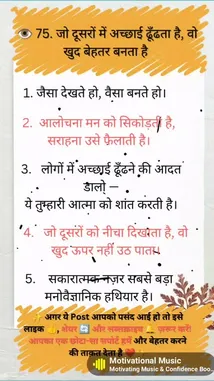 👁️ 75. जो दूसरों में अच्छाई ढूँढता है, वो
खुद बेहतर बनता है
1. जैसा देखते हो, वैसा बनते हो।
2. आलोचना मन को सिकोड़ती है,
सराहना उसे फैलाती है।
3. लोगों में अच्छाई ढूँढने की आदत
डालो —
ये तुम्हारी आत्मा को शांत करती है।
4. जो दूसरों को नीचा दिखाता है, वो
खुद ऊपर नहीं उठ पाता।
5. सकारात्मक नज़र सबसे बड़ा
मनोवैज्ञानिक हथियार है।
अगर ये Post आपको पसंद आई हो तो इसे
लाइक 👍, शेयर 🔄 और सब्सक्राइब 🔔 ज़रूर करें!
आपका एक छोटा-सा सपोर्ट हमें और बेहतर करने
की ताकत देता है ❤️
Motivational Music
Motivating Music & Confidence Boo